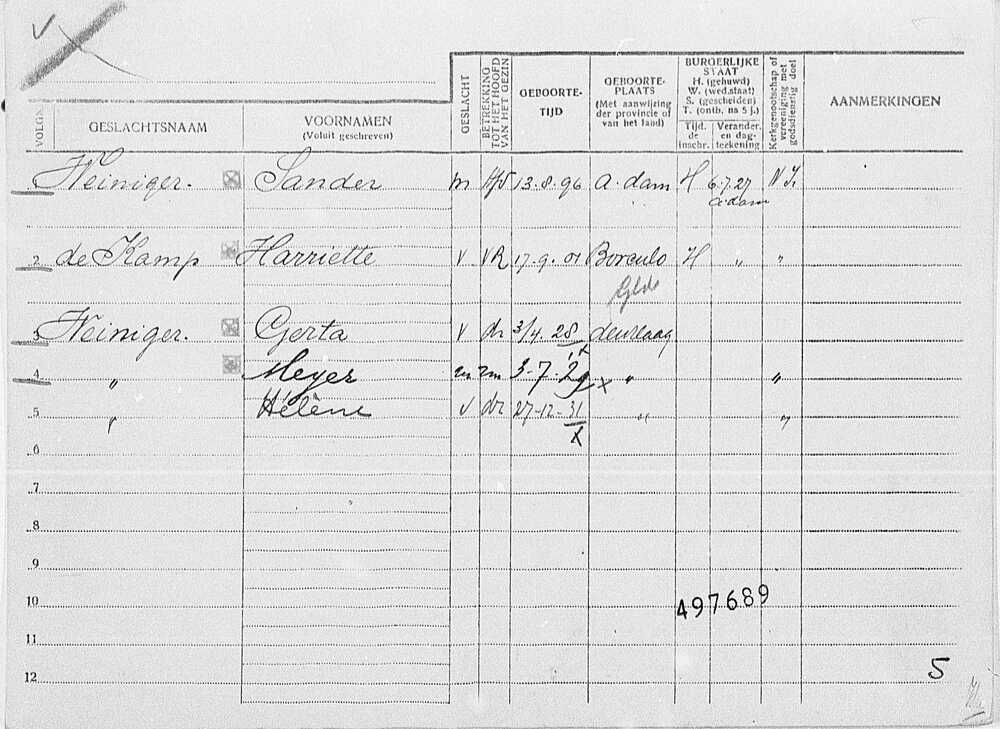 VOLGN.
GESLACHTSNAAM
VOORNAMEN
(Voluit geschreven)
GESLACHT
BETREKKING
TOT HET HOOFD
VAN HET GEZIN
GEBOORTE-
TIJD
GEBOORTE-
PLAATS
(Met aanwijzing
der provincie of
van het land)
BURGERLIJKE
STAAT
H. (gehuwd)
W. (wed.staat)
S. (gescheiden)
T. (ontb. na 5 j.)
Tijd.
de
inschr.
Verander.
en dag-
teekening
Kerkgenootschap of
vereeniging met
godsdienstig doel
AANMERKINGEN
Weiniger. Sander m Hfd 13.8.96 A.dam H 6.7.27 N I.
A.dam
2 de Kamp Harriette v VR 17.9.01 Borculo H " "
Glds
3 Weiniger. Gerta v dr 3/4.28 den Haag
x
4 " Meyer m zn 3.7.29 x " "
5 " Hélène v dr 27-12-31 " "
x
6
7
8
9
10 497689
11
12 5